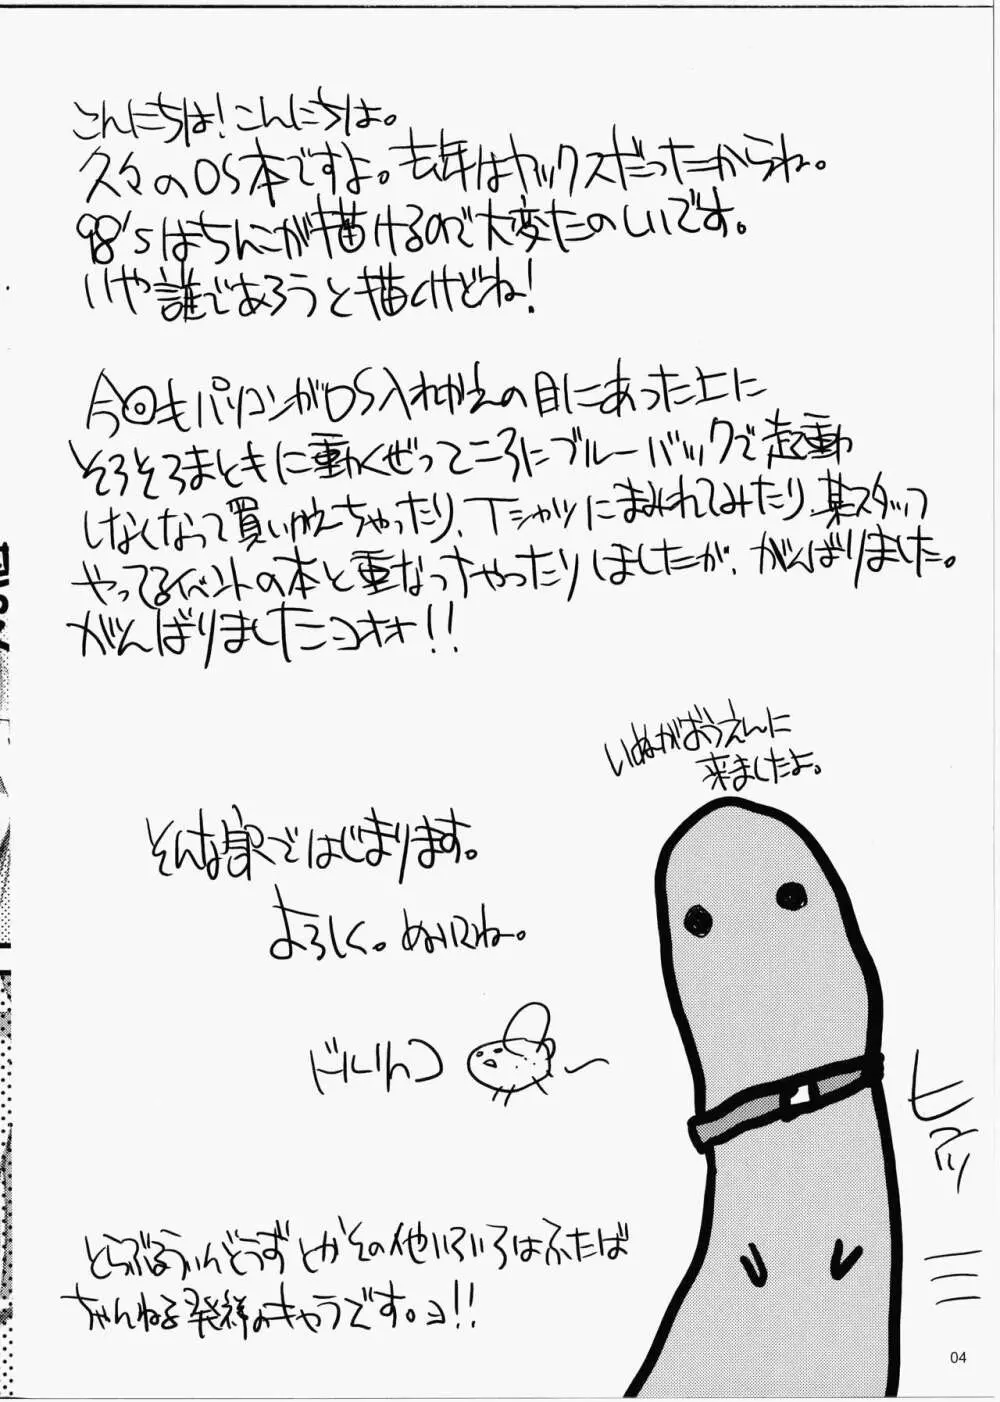 こんにちは!こんにちは。
久々のOS本ですよ。去年はヤックスだったからね。
98'sはちんこが描けるので大変たのしいです。
いや誰であろうと描くけどね!
今回もパソコンがOS入れかえの目にあった上に
そろそろまともに動くぜってころにブルーバックで起動
しなくなって買いかえちゃったり、Tシャツにまみれてみたり、某スタッフ
やってるイベントの本と重なっちゃったりしましたが、がんばりました。
がんばりましたニョキキ!!
いぬがおうえんに
来ましたよ。
そんな訳ではじまります。
よろしく。ぬいにね。
ドルりんコ
ヒアッ
とらぶるういんどうずとかその他いろいろはふたば
ちゃんねる発祥のキャラです。ヨ!!
04